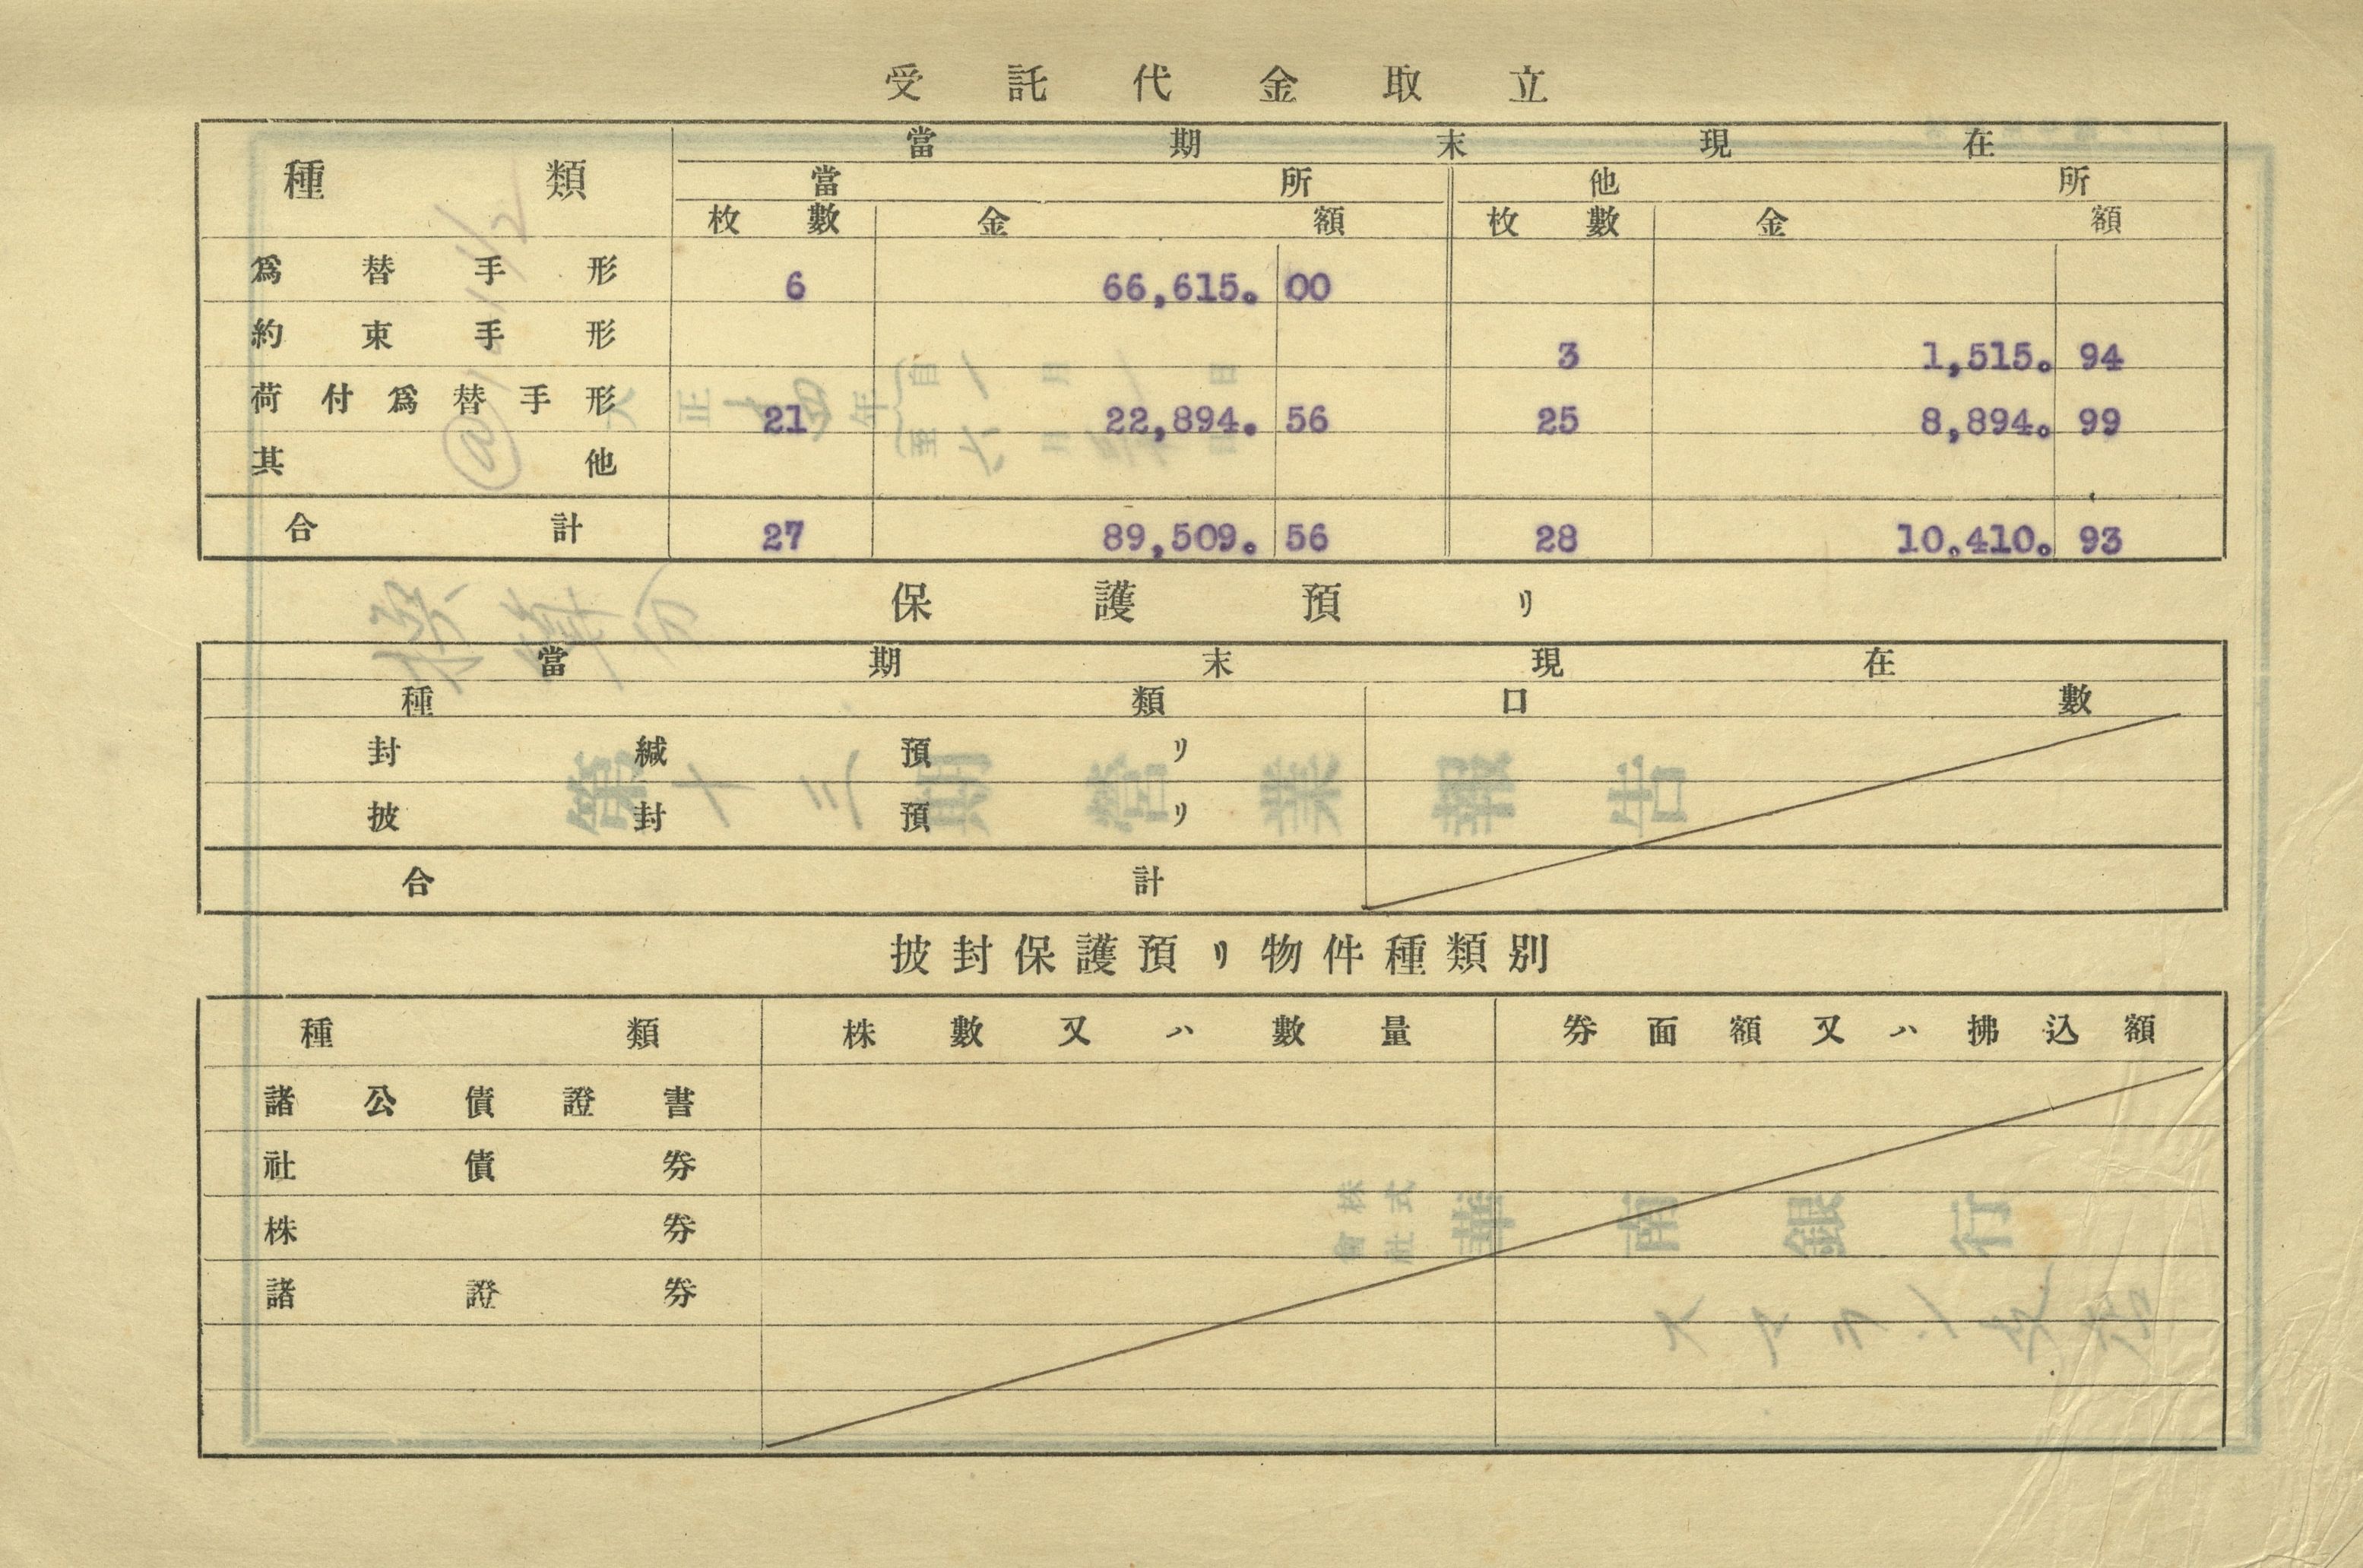 受託代金取立
種類 當期末現在
當所 他所
枚數 金額 枚數 金額
爲替手形 6 66,615.00
約束手形 3 1,515.94
荷付爲替手形 21 22,894.56 25 8,894.99
其他
合計 27 89,509.56 28 10,410.93
保護預リ
當期末現在
種類 口數
封緘預リ
披封預リ
合計
披封保護預リ物件種類別
種類 株數又ハ數量 券面額又ハ拂込額
諸公債證書
社債券
株券
諸證券
大正十四年自一月一日
至六月
第十三期營業報告
株式會社華南銀行